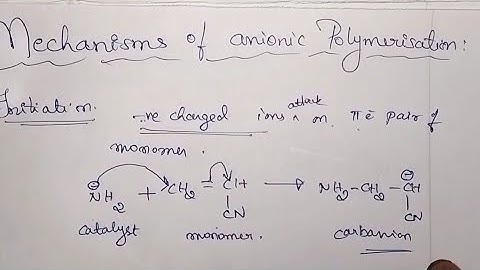 Mechanisms of anionic Polymerisation:
Initiation. -ve charged ions ^ attack on πē pair of
monomer.
⊖NH2 + CH2=CH → NH2-CH2-⊖CH
CN CN
catalyst monomer. carbanion